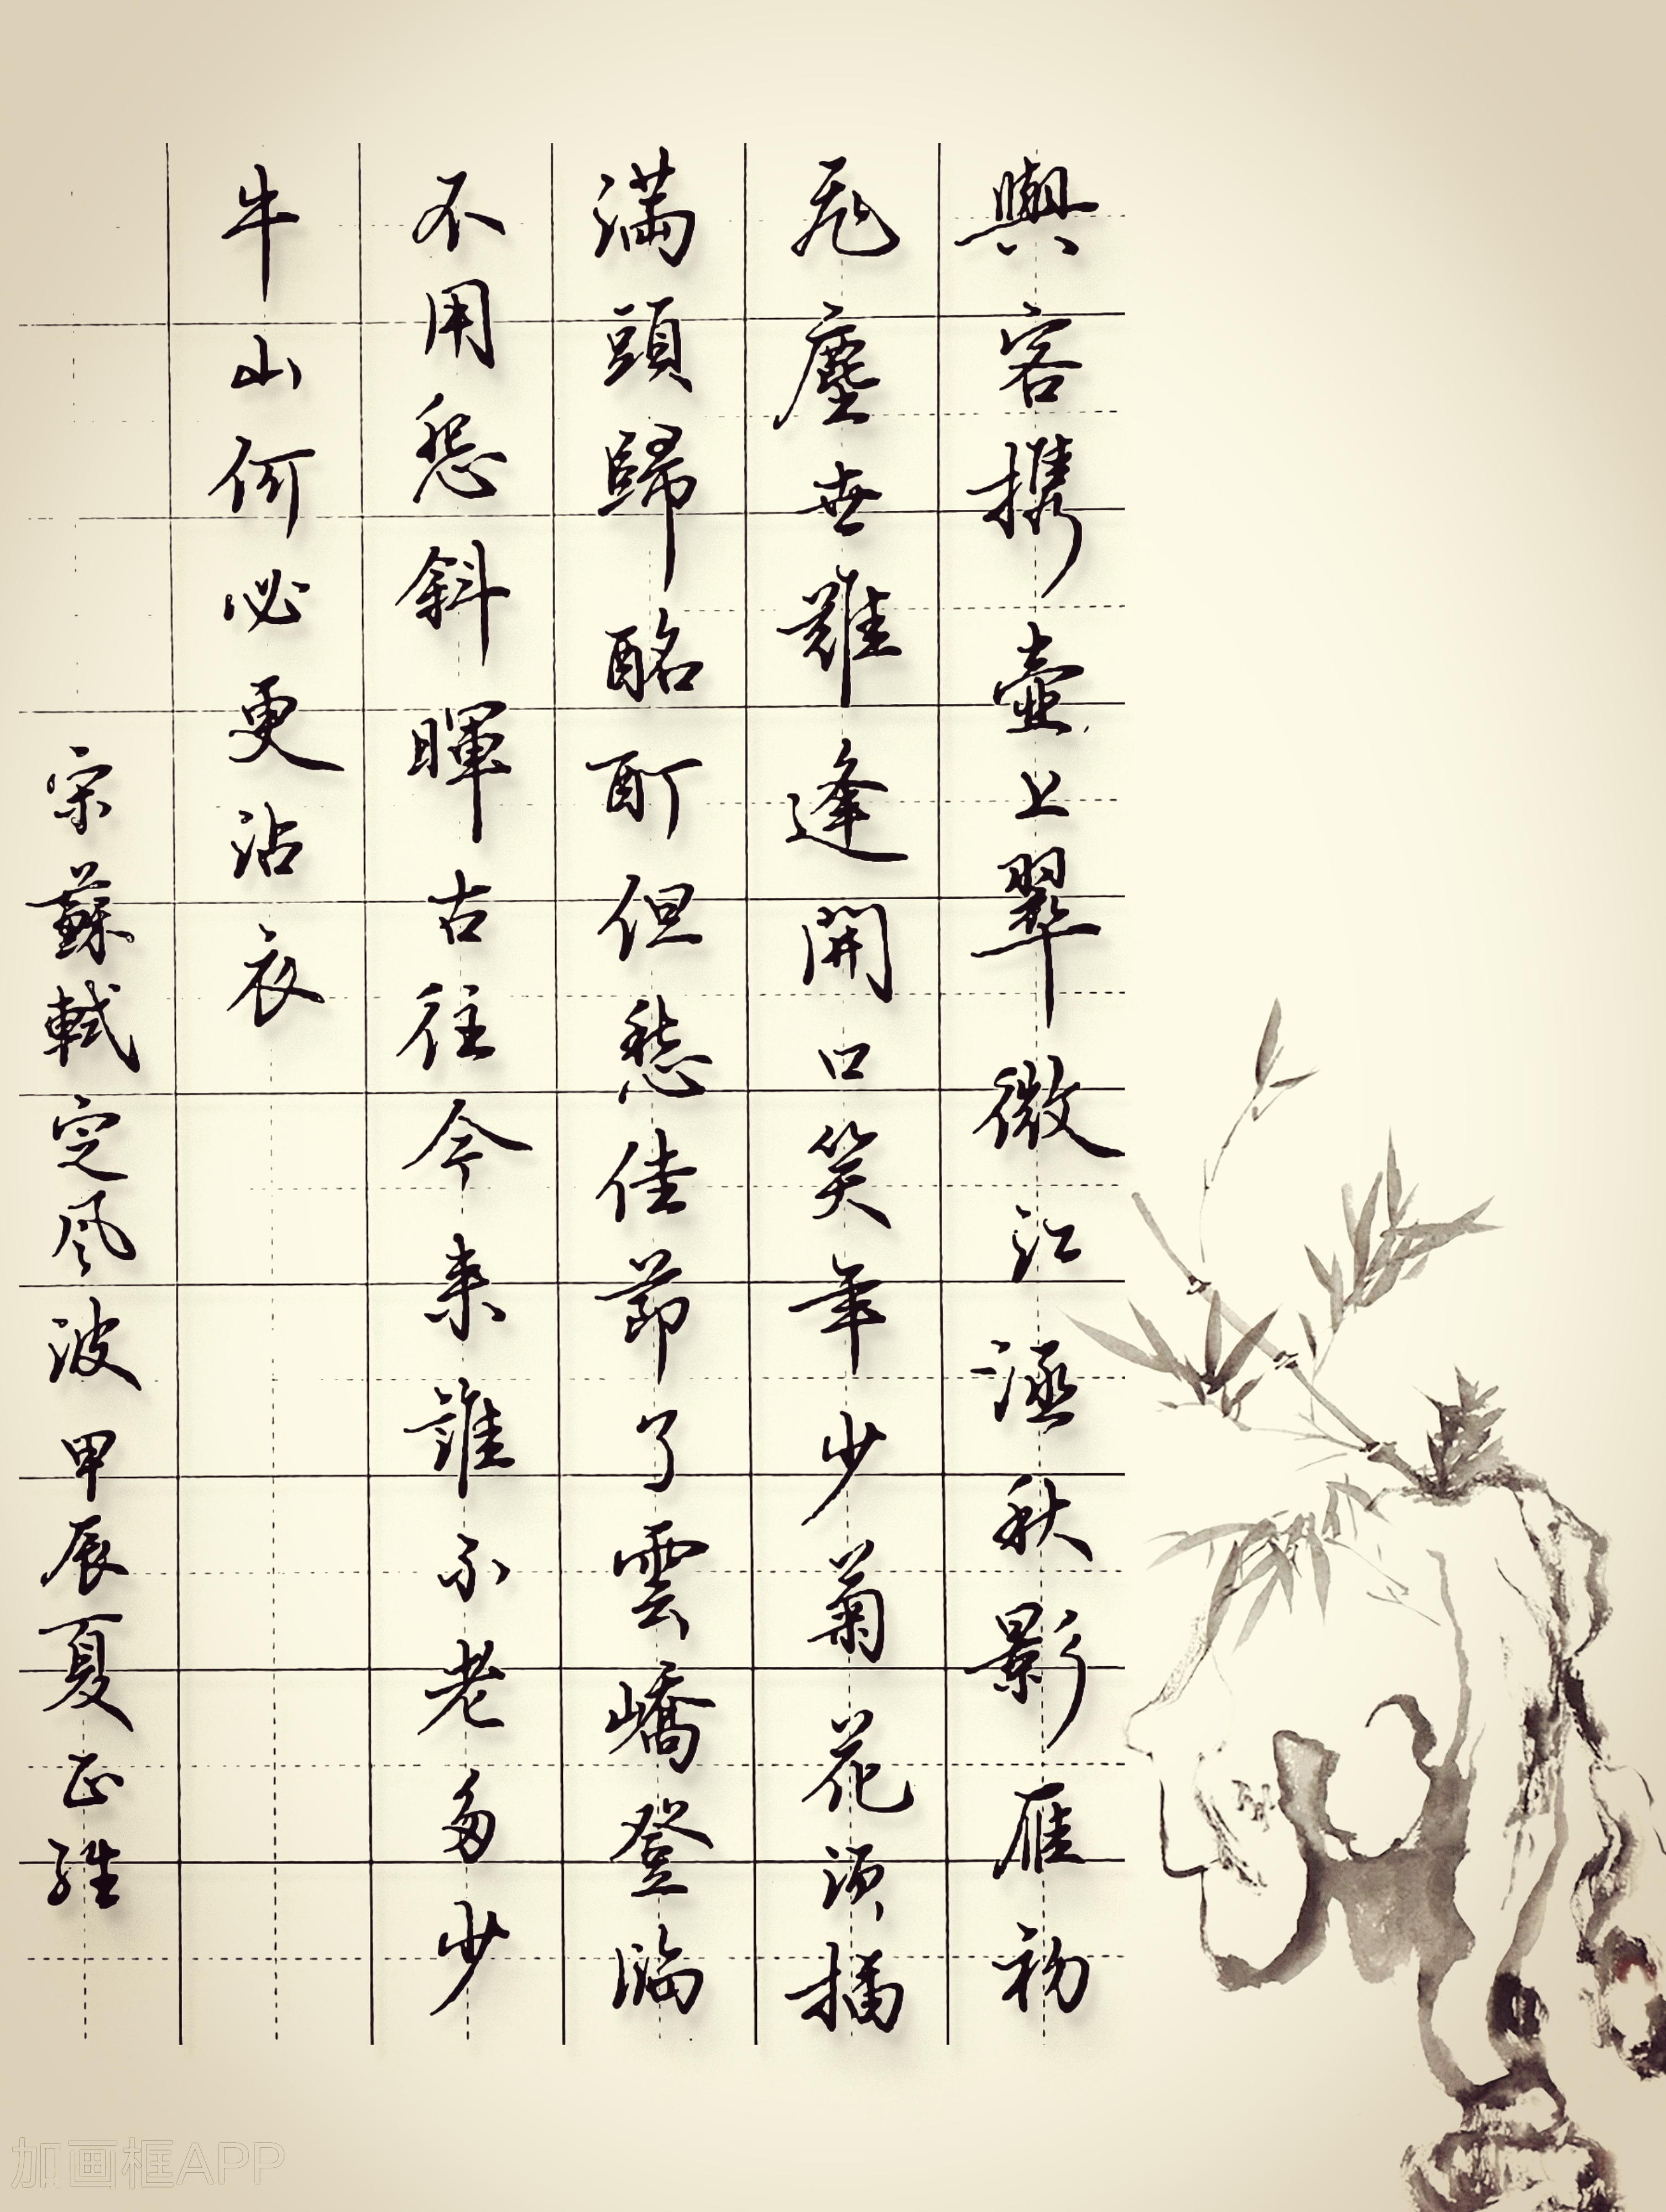 與客携壺上翠微江涵秋影雁初
飛塵世難逢開口笑年少菊花須插
滿頭歸酩酊但愁佳節了雲嶠登臨
不用怨斜暉古往今來誰不老多少
牛山何必更沾衣
宋蘇軾定風波甲辰夏正維
加画框APP